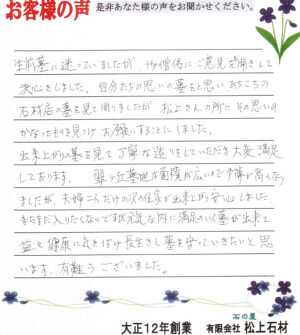 お客様の声 是非あなた様の声をお聞かせください。
生前墓に迷っていましたが、御僧侶にご意見を聞きして
決心をしました。自分たちの思いの墓をと思い、あちこちの
石材店の墓を見て周りましたが松上さんの所にその思いの
かなったものを見つけお願いすることにしました。
出来上がりの墓を見て丁寧な造りをしていただき大変満足
しております。 翠ヶ丘墓地は面積が広いので予算が高くなり
ましたが、夫婦二人だけの次の住家が出来上がり安心しました。
まだまだ入りたくないですが元気な内に満足のいく墓が出来て
益々健康に気を付け長生きし墓を守っていきたいと思
います。有難うございました。
石の屋
大正12年創業 有限会社 松上石材